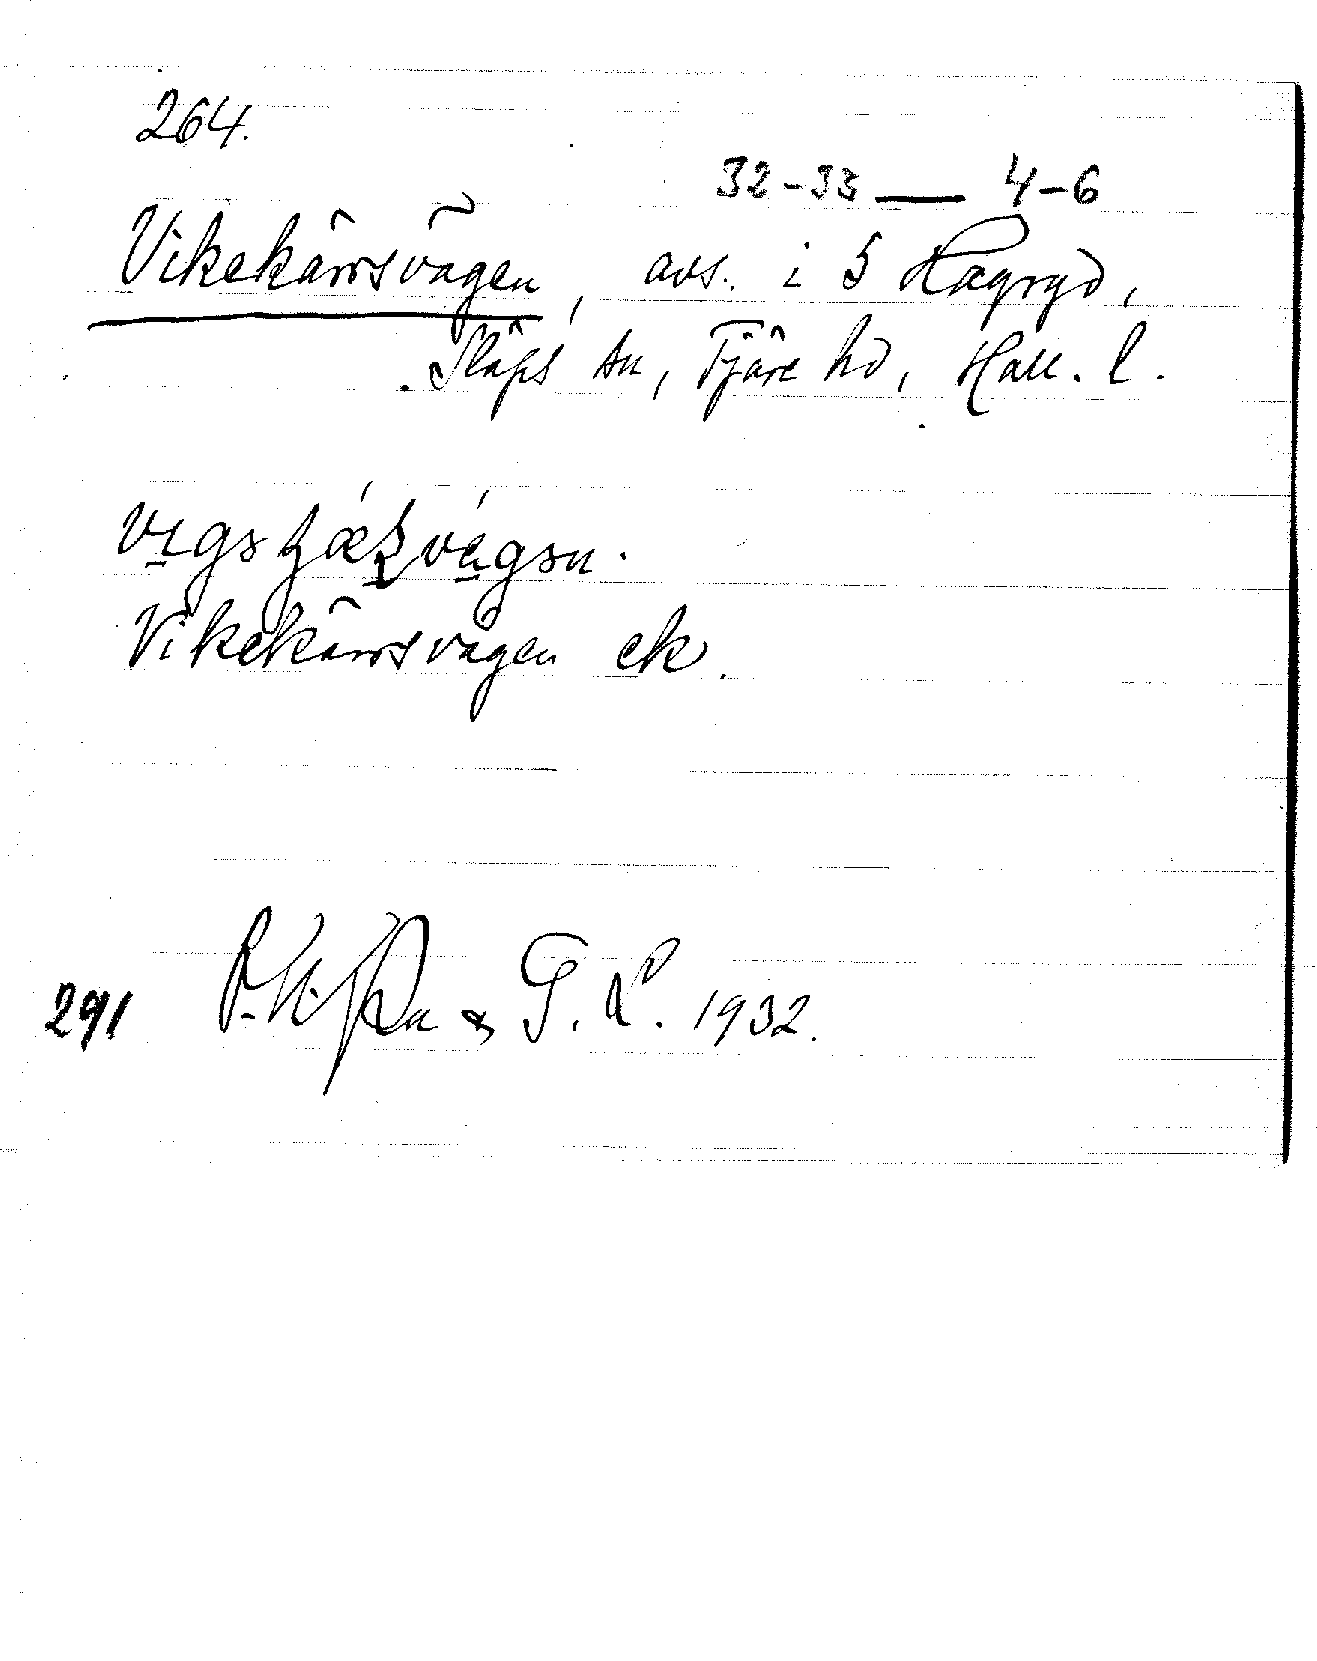 264.
32-33 — 4-6
Vikekärrsvägen, avs. i S Hagryd,
Släps sn, Fjäre hd, Hall. l.
Vikekärrsvägen ek.
291 & G. L. 1932.